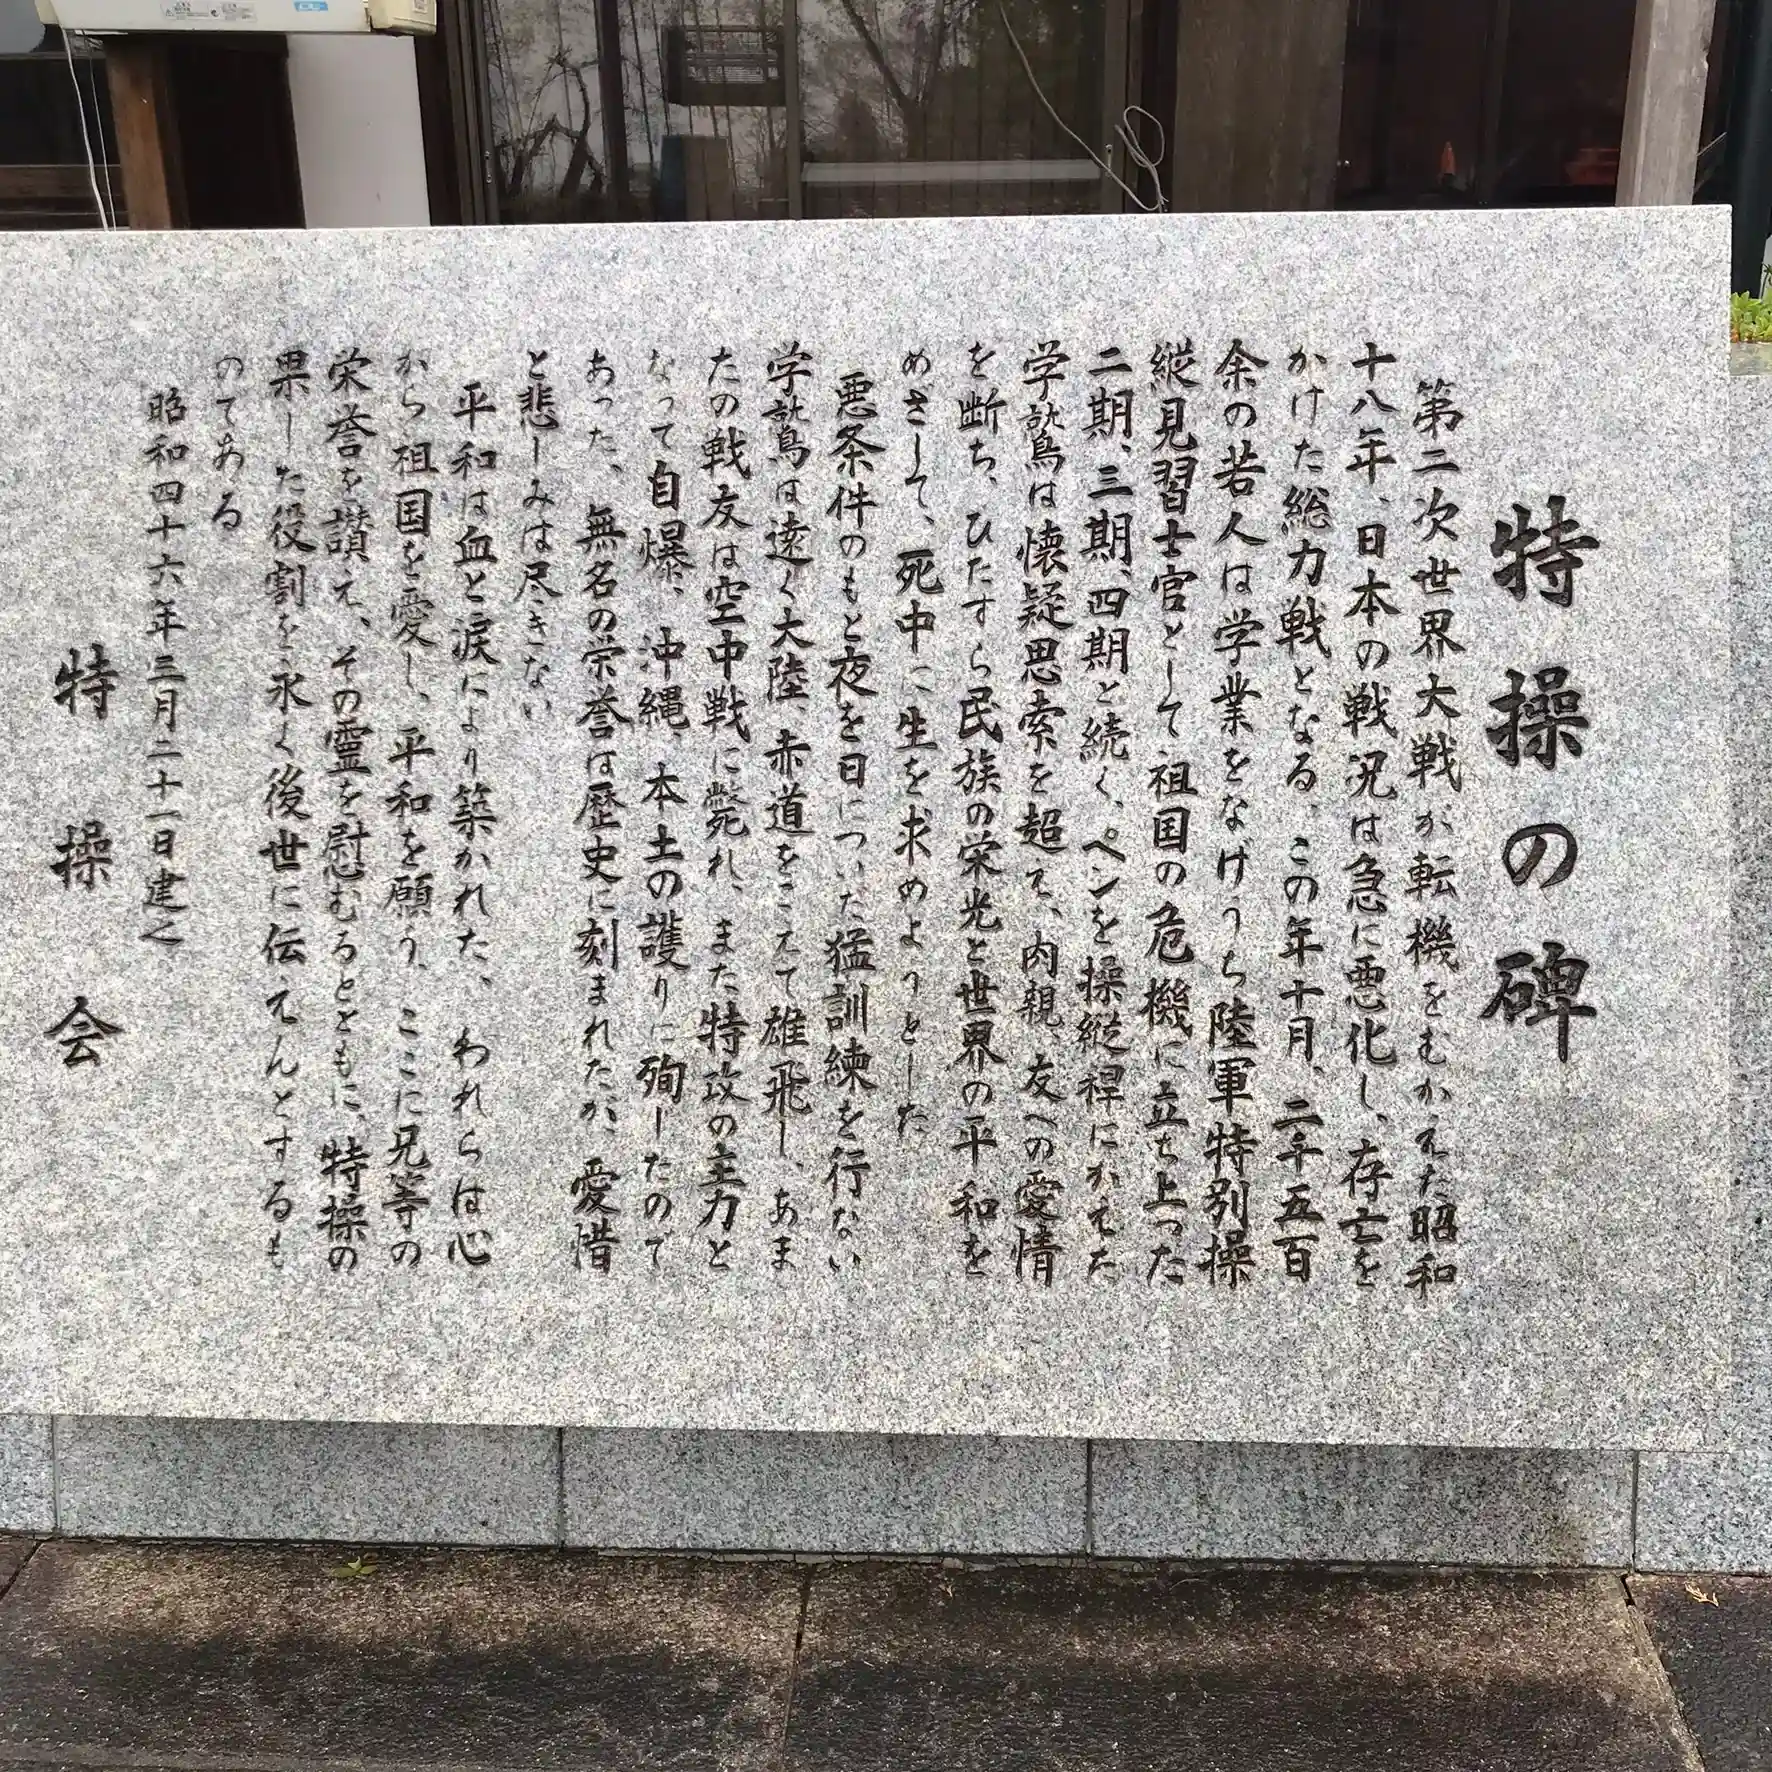 特操の碑
第二次世界大戦が転機をむかえた昭和
十八年、日本の戦況は急に悪化し、存亡を
かけた総力戦となる。この年十月、二千五百
余の若人は学業をなげうち陸軍特別操
縦見習士官として祖国の危機に立ち上った
二期、三期、四期と続く、ペンを操縦桿にかえた
学鷲は懐疑思索を超て、肉親、友への愛情
を断ち、ひたすら民族の栄光と世界の平和を
めざして、死中に生を求めようとした
悪条件のもと夜を日についた猛訓練を行ない
学鷲は遠く大陸、赤道をこえて雄飛し、あま
たの戦友は空中戦に斃れ、また特攻の主力と
なって自爆、沖縄、本土の護りに殉したので
あった、無名の栄誉は歴史に刻まれたが、愛惜
と悲しみは尽きない
平和は血と涙により築かれた、われらは心
から祖国を愛し、平和を願う、ここに兄等の
栄誉を讃え、その霊を慰むるとともに、特操の
果した役割を永く後世に伝えんとするも
のてある
昭和四十六年三月二十一日建之
特操会